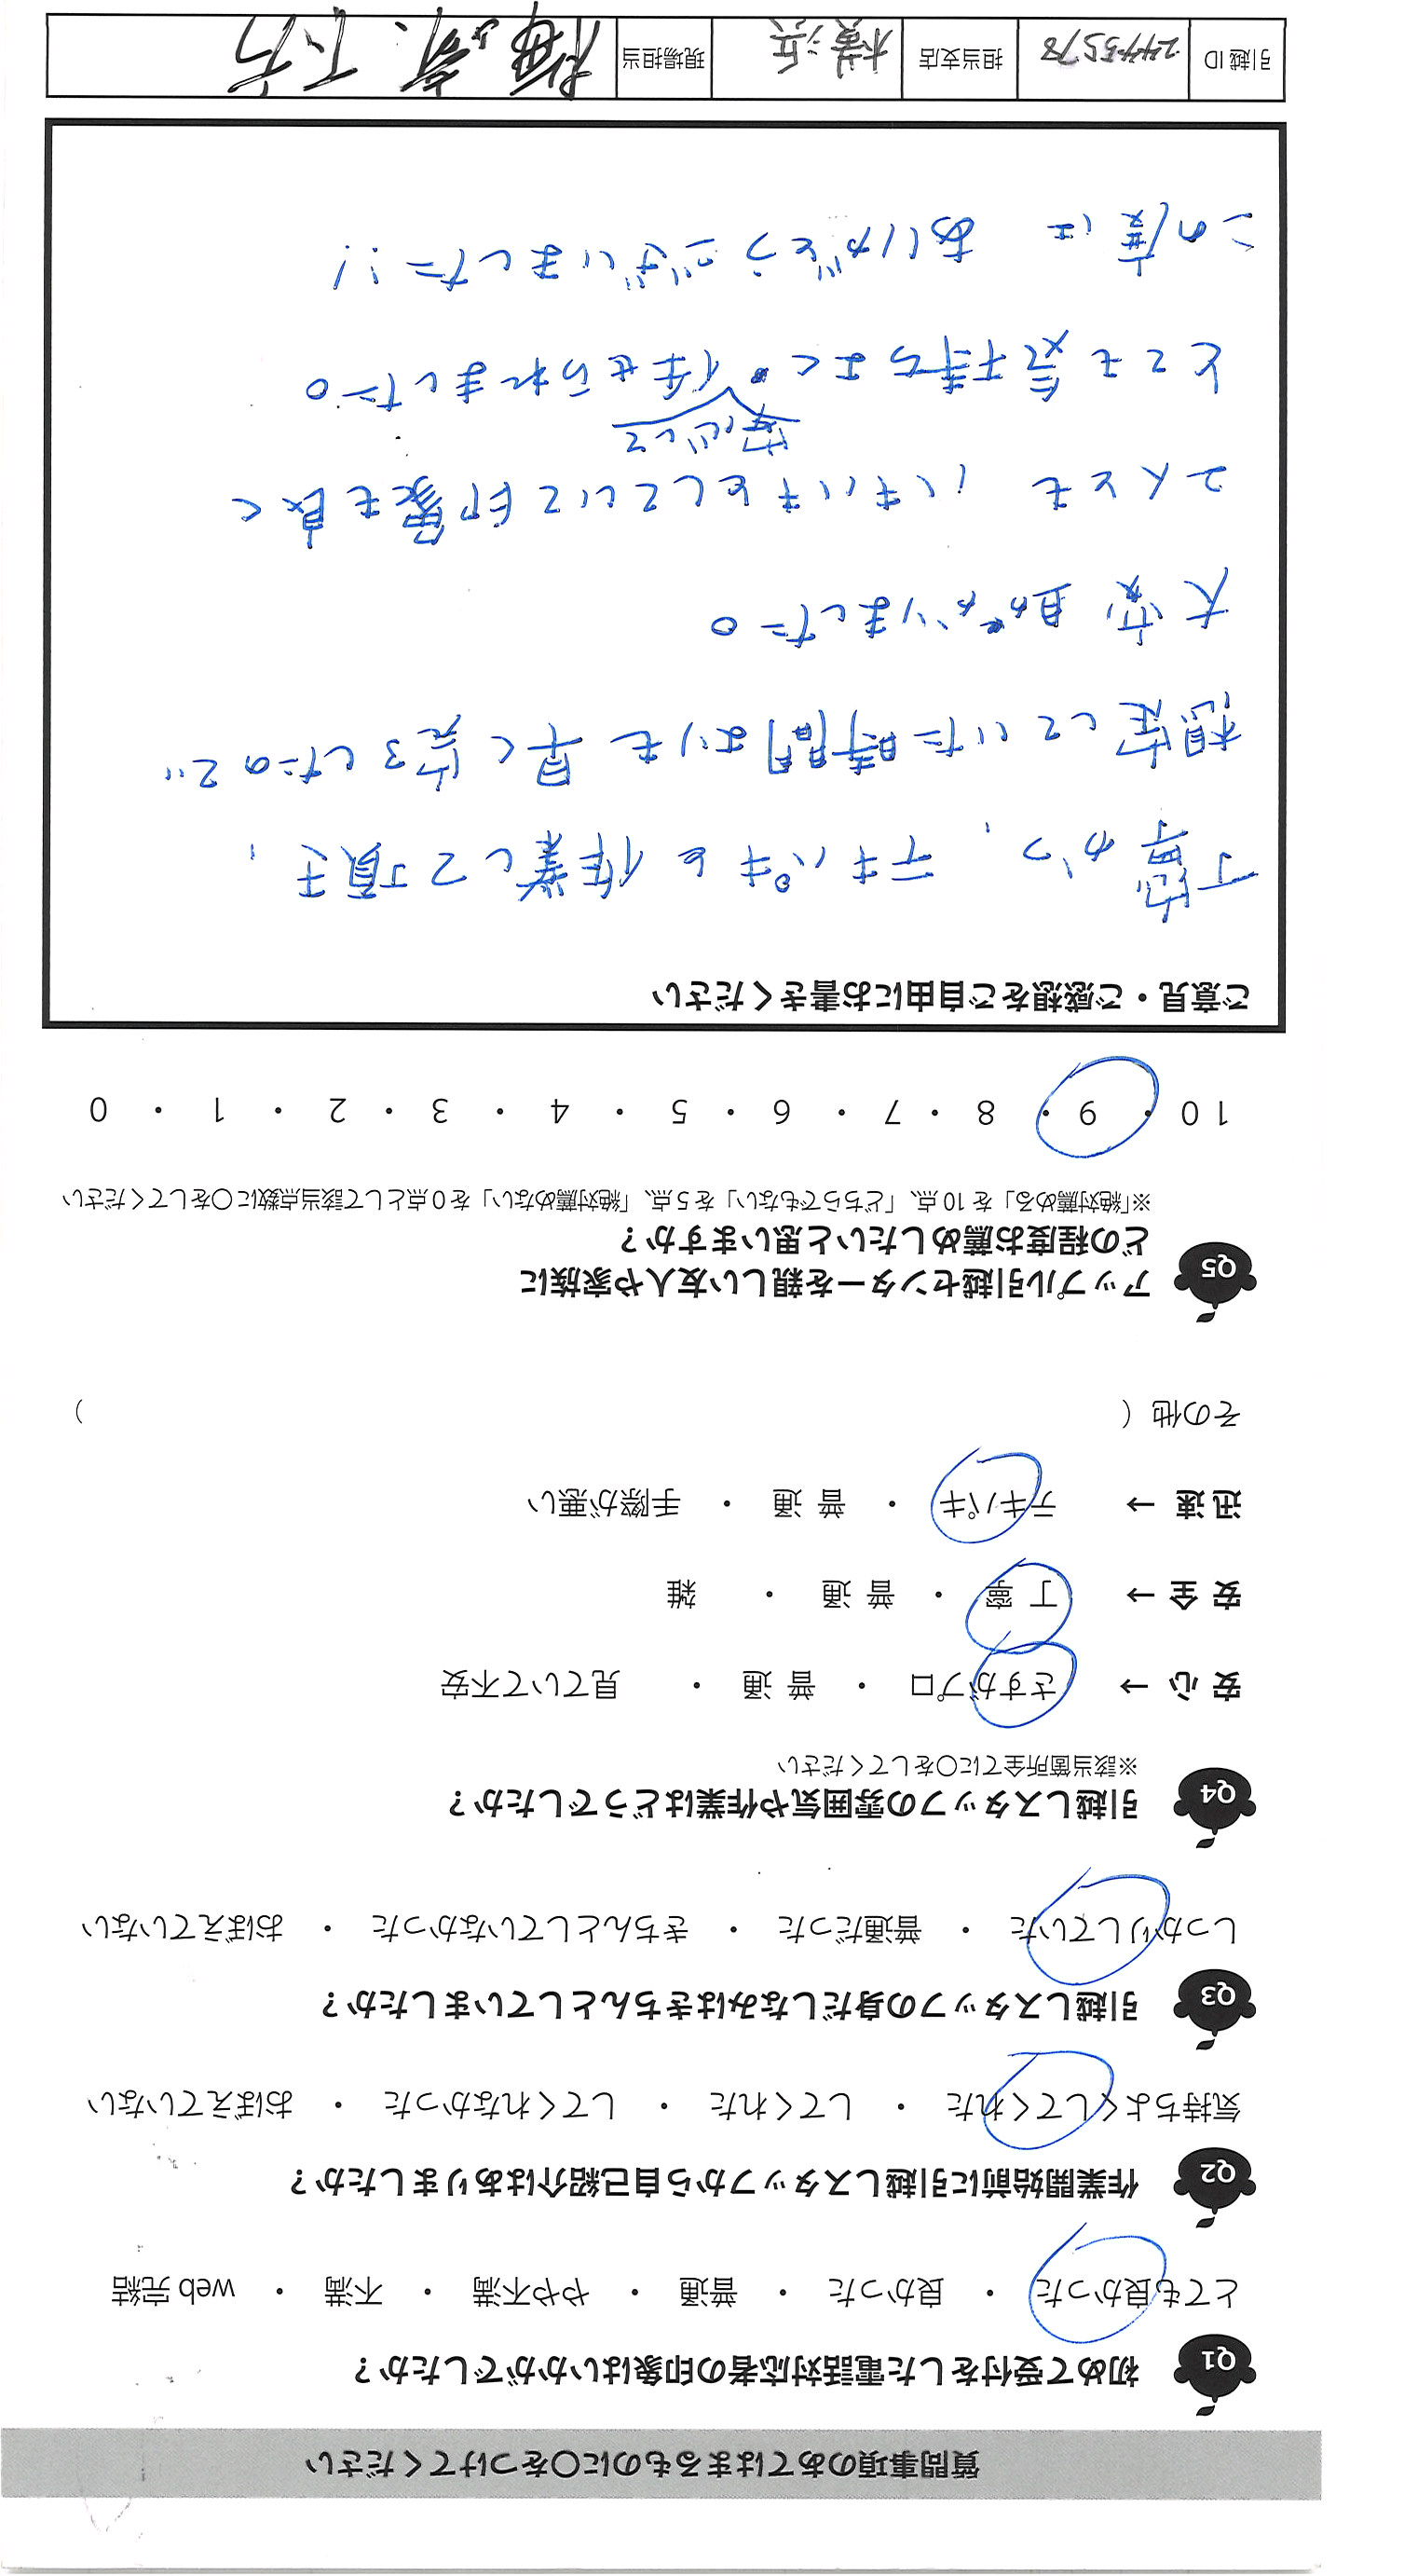 質問事項のあてはまるものに〇をつけてください
Q1 初めて受付をした電話対応者の印象はいかがでしたか？
とても良かった ・ 良かった ・ 普通 ・ やや不満 ・ 不満 ・ web 完結
Q2 作業開始前に引越しスタッフから自己紹介はありましたか？
気持ちよくしてくれた ・ してくれた ・ してくれなかった ・ おぼえていない
Q3 引越しスタッフの身だしなみはきちんとしていましたか？
しっかりしていた ・ 普通だった ・ きちんとしていなかった ・ おぼえていない
Q4 引越しスタッフの雰囲気や作業はどうでしたか？
※該当箇所全てに〇をしてください
安 心 → さすがプロ ・ 普 通 ・ 見ていて不安
安 全 → 丁 寧 ・ 普 通 ・ 雑
迅 速 → テキパキ ・ 普 通 ・ 手際が悪い
その他（ ）
Q5 アップル引越センターを親しい友人や家族に
どの程度お薦めしたいと思いますか？
※「絶対薦める」を 10 点、「どちらでもない」を 5 点、「絶対薦めない」を 0 点として該当点数に〇をしてください
10 ・ 9 ・ 8 ・ 7 ・ 6 ・ 5 ・ 4 ・ 3 ・ 2 ・ 1 ・ 0
ご意見・ご感想をご自由にお書きください
丁寧かつ、テキパキと作業して頂き、
想定していた時間よりも早く完了したので
大変助かりました。
2人とも ハキハキとしていて印象も良く
安心して
とても気持ちよく 任せられました。
この度は ありがとうございました!!
引越 ID 担当支店 横浜 現場担当